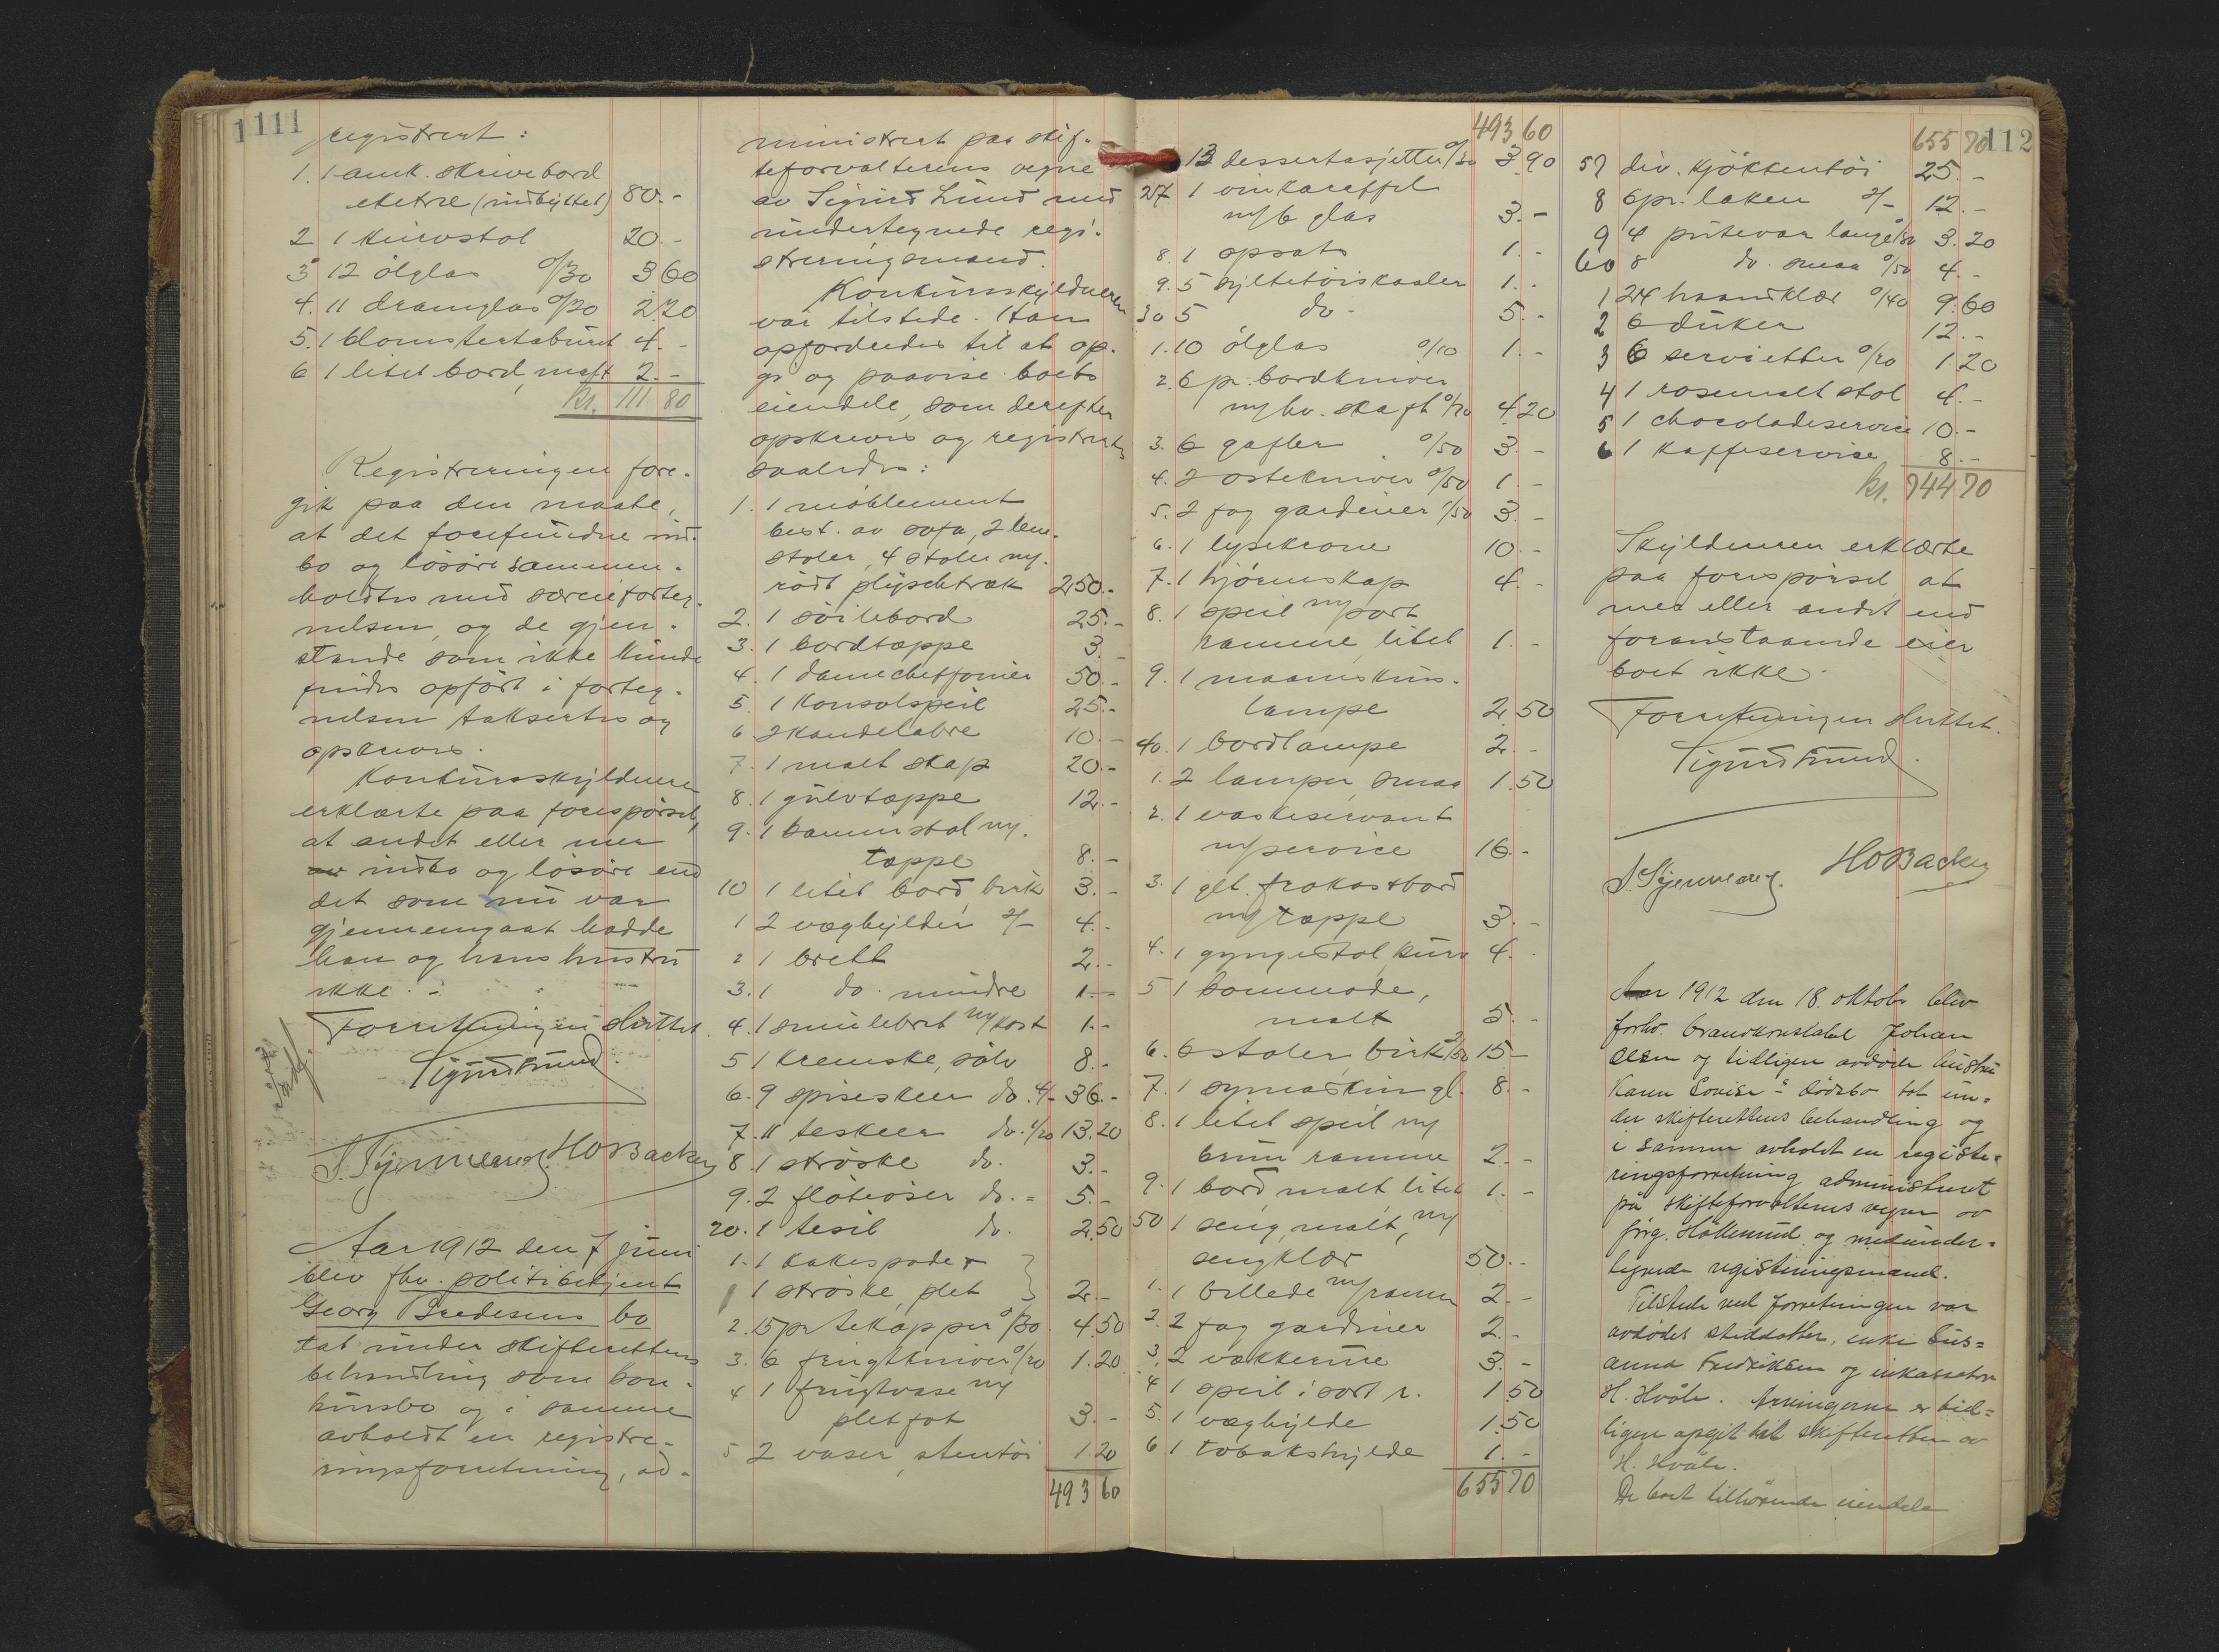 111
registrert:
1. 1 amk. skrivebord
eketræ (indbyttet) 80.-
2 1 kurvstol 20.-
3 12 ölglas 0/30 3 60
4. 11 dramglas 0/20 2 20
5. 1 blomstertaburet 4.-
6 1 litet bord, malt 2.-
kr. 111 80
Registreringen fore-
gik paa den maate,
at det forefundne ind-
bo og lösöre sammen-
holdtes med særeieforteg-
nelsen, og de gjen-
stande som ikke kunde
findes opfört i forteg-
nelsen taksertes og
opskreves.
Konkursskyldneren
erklærte paa forespörsel,
at andet eller mer
indbo og lösöre end
det som nu var
gjennemgaat hadde
han og hans hustru
ikke.-
Forretningen sluttet.
Sigurd Lund.
HOBacker
Aar 1912 den 7 juni
blev fhv. politibetjent
Georg Bredesens bo
tat under skifterettens
behandling som kon-
kursbo og i samme
avholdt en registre-
ringsforretning, ad-
ministrert paa skif-
teforvalterens vegne
av Sigurd Lund med
undertegnede regi-
streringsmænd.
Konkursskyldneren
var tilstede. Han
opfordredes til at op-
gi og paavise boets
eiendele, som derefter
opskreves og registrertes
saaledes:
1. 1 möblement
best. av sofa, 2 læne-
stoler, 4 stoler m/
rödt plyschtræk 250.-
2. 1 söilebord 25.-
3. 1 bordtæppe 3.-
4. 1 damecheffonier 50.-
5. 1 konsolspeil 25.-
6. 2 kandelabre 10.-
7. 1 malt skap 20.-
8. 1 gulvtæppe 12.-
9. 1 bammestol m/
tæppe 8.-
10 1 litet bord, birk 3.-
1 2 væghylder 2/- 4.-
2 1 brett 2.-
3. 1 do. mindre 1.-
4. 1 smulebret m/kost 1.-
5 1 kremske, sölv 8.-
6. 9 spiseskeer do. 4/- 36.-
7. 11 teskeer do. 1/20 13.20
8. 1 ströske do. 3.-
9. 2 flöteöser do. = 5.-
20. 1 tesil do. 2.50
1. 1 kakespade +
1 ströske, plet } 2.-
2. 15 pr tekopper 0/30 4.50
3. 6 frugtkniver 0/20 1.20
4 1 frugtvase m/
pletfot 3.-
5 2 vaser, stentöi 1.20
493 60
493 60
13 dessertasjetter 0/30 3 90
27 1 vinkaraffel
m/6 glas 3.-
8. 1 opsats 1.-
9. 5 syltetöiskaaler 1.-
30 5 do. 5.-
1. 10 ölglas 0/10 1.-
2. 6 pr. bordkniver
m/hv. skaft 0/70 4 20
3. 6 gafler 0/50 3.-
4. 2 ostekniver 0/50 1.-
5. 2 fag gardiner 1/50 3.-
6. 1 lysekrone 10.-
7. 1 hjörneskap 4.-
8. 1 speil m/sort
ramme, litet 1.-
9. 1 maaneskins-
lampe 2 50
40. 1 bordlampe 2.-
1. 2 lamper, smaa 1 50
2. 1 vaskeservant
m/service 16.-
3. 1 glt. frokostbord
m/tæppe 3.-
4. 1 gyngestol, kurv 4.-
5 1 kommode,
malt 5.-
6. 6 stoler, birk 2/50 15.-
7. 1 symaskin gl. 8.-
8. 1 litet speil m/
brun ramme 2.-
9. 1 bord, malt, litet 1.-
50 1 seng, malt, m/
sengklær 50.-
1. 1 billede m/ramme 2.-
2. 2 fag gardiner 2.-
3. 2 vækkerure 3.-
4 1 speil i sort r. 1 50
5. 1 væghylde 1.50
6 1 tobakshylde 1.-
655 70
655 70
112
57 div. kjökkentöi 25.-
8 6 pr. laken 2/- 12.-
9 4 putevar lange 0/80 3.20
60 8 do. smaa 0/50 4.-
1 24 haandklær 0/40 9.60
2 6 duker 12.-
3 6 servietter 0/20 1.20
4 1 rosemalt stol 4.-
5 1 chocoladeservice 10.-
6 1 kaffeservise 8.-
kr. 744 70
Skyldneren erklærte
paa forespörsel, at
mer eller andet end
foranstaaende eier
boet ikke.
Forretningen sluttet.
Sigurd Lund.
HOBacker
Aar 1912 den 18. oktobr blev
forhv. brandkonstabel Johan
Olsen og tidligere avdöde hustru
Karen Lovise's dödsbo tat un-
der skifterettens behandling og
i samme avholdt en registre-
ringsforretning administreret
på skifteforvalterens vegne av
förg. Hökkerud og medunder-
tegnede registreringsmænd.
Tilstede ved forretningen var
avdödes steddatter, enke Sus-
anna Fredriksen og inkassator
H. Hvåle. Arvingerne er tid-
ligere opgit til skifteretten av
H. Hvåle.
De boet tilhörende eiendele